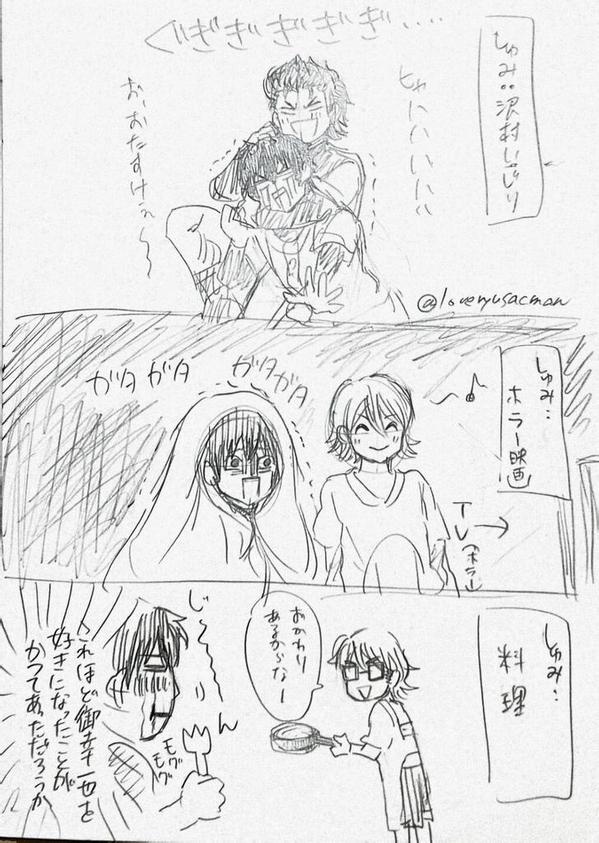 しゅみ：沢村いじり
ぐぎぎぎぎぎ・・・・
ヒャハハハハハ
お、おたすけぇ〜〜
@loveryusacman
しゅみ：ホラー映画
〜♪
ガタガタ
ガタガタ
TV(ホラー)→
しゅみ：料理
おかわり
あるからなー
じ〜〜〜ん
モグ
モグ
これほど御幸一也を
好きになったことが
かつてあっただろうか